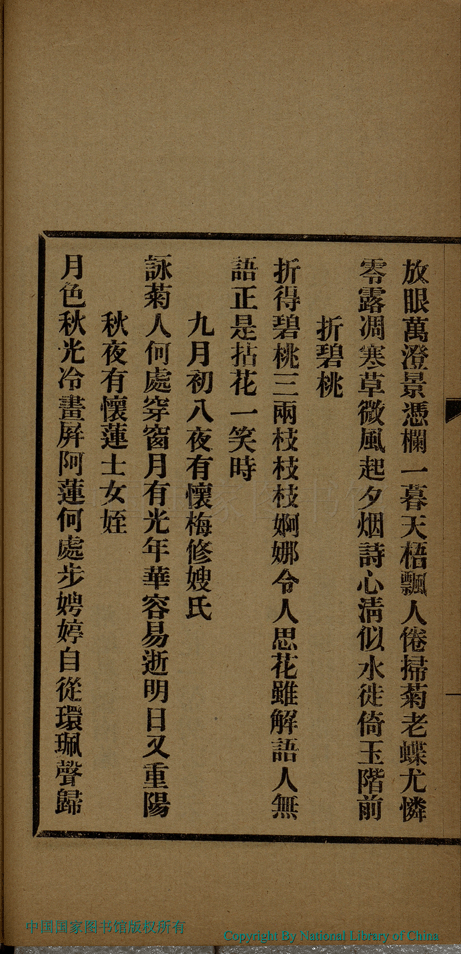 放眼萬澄景憑欄一暮天梧飄人倦掃菊老蝶尤憐
零露凋寒草微風起夕烟詩心清似水徙倚玉階前
折碧桃
折得碧桃三兩枝枝枝婀娜令人思花雖解語人無
語正是拈花一笑時
九月初八夜有懷梅修嫂氏
詠菊人何處穿窗月有光年華容易逝明日又重陽
秋夜有懷蓮士女姪
月色秋光冷畫屏阿蓮何處步娉婷自從環珮聲歸
中国国家图书馆版权所有
Copyright By National Library of China